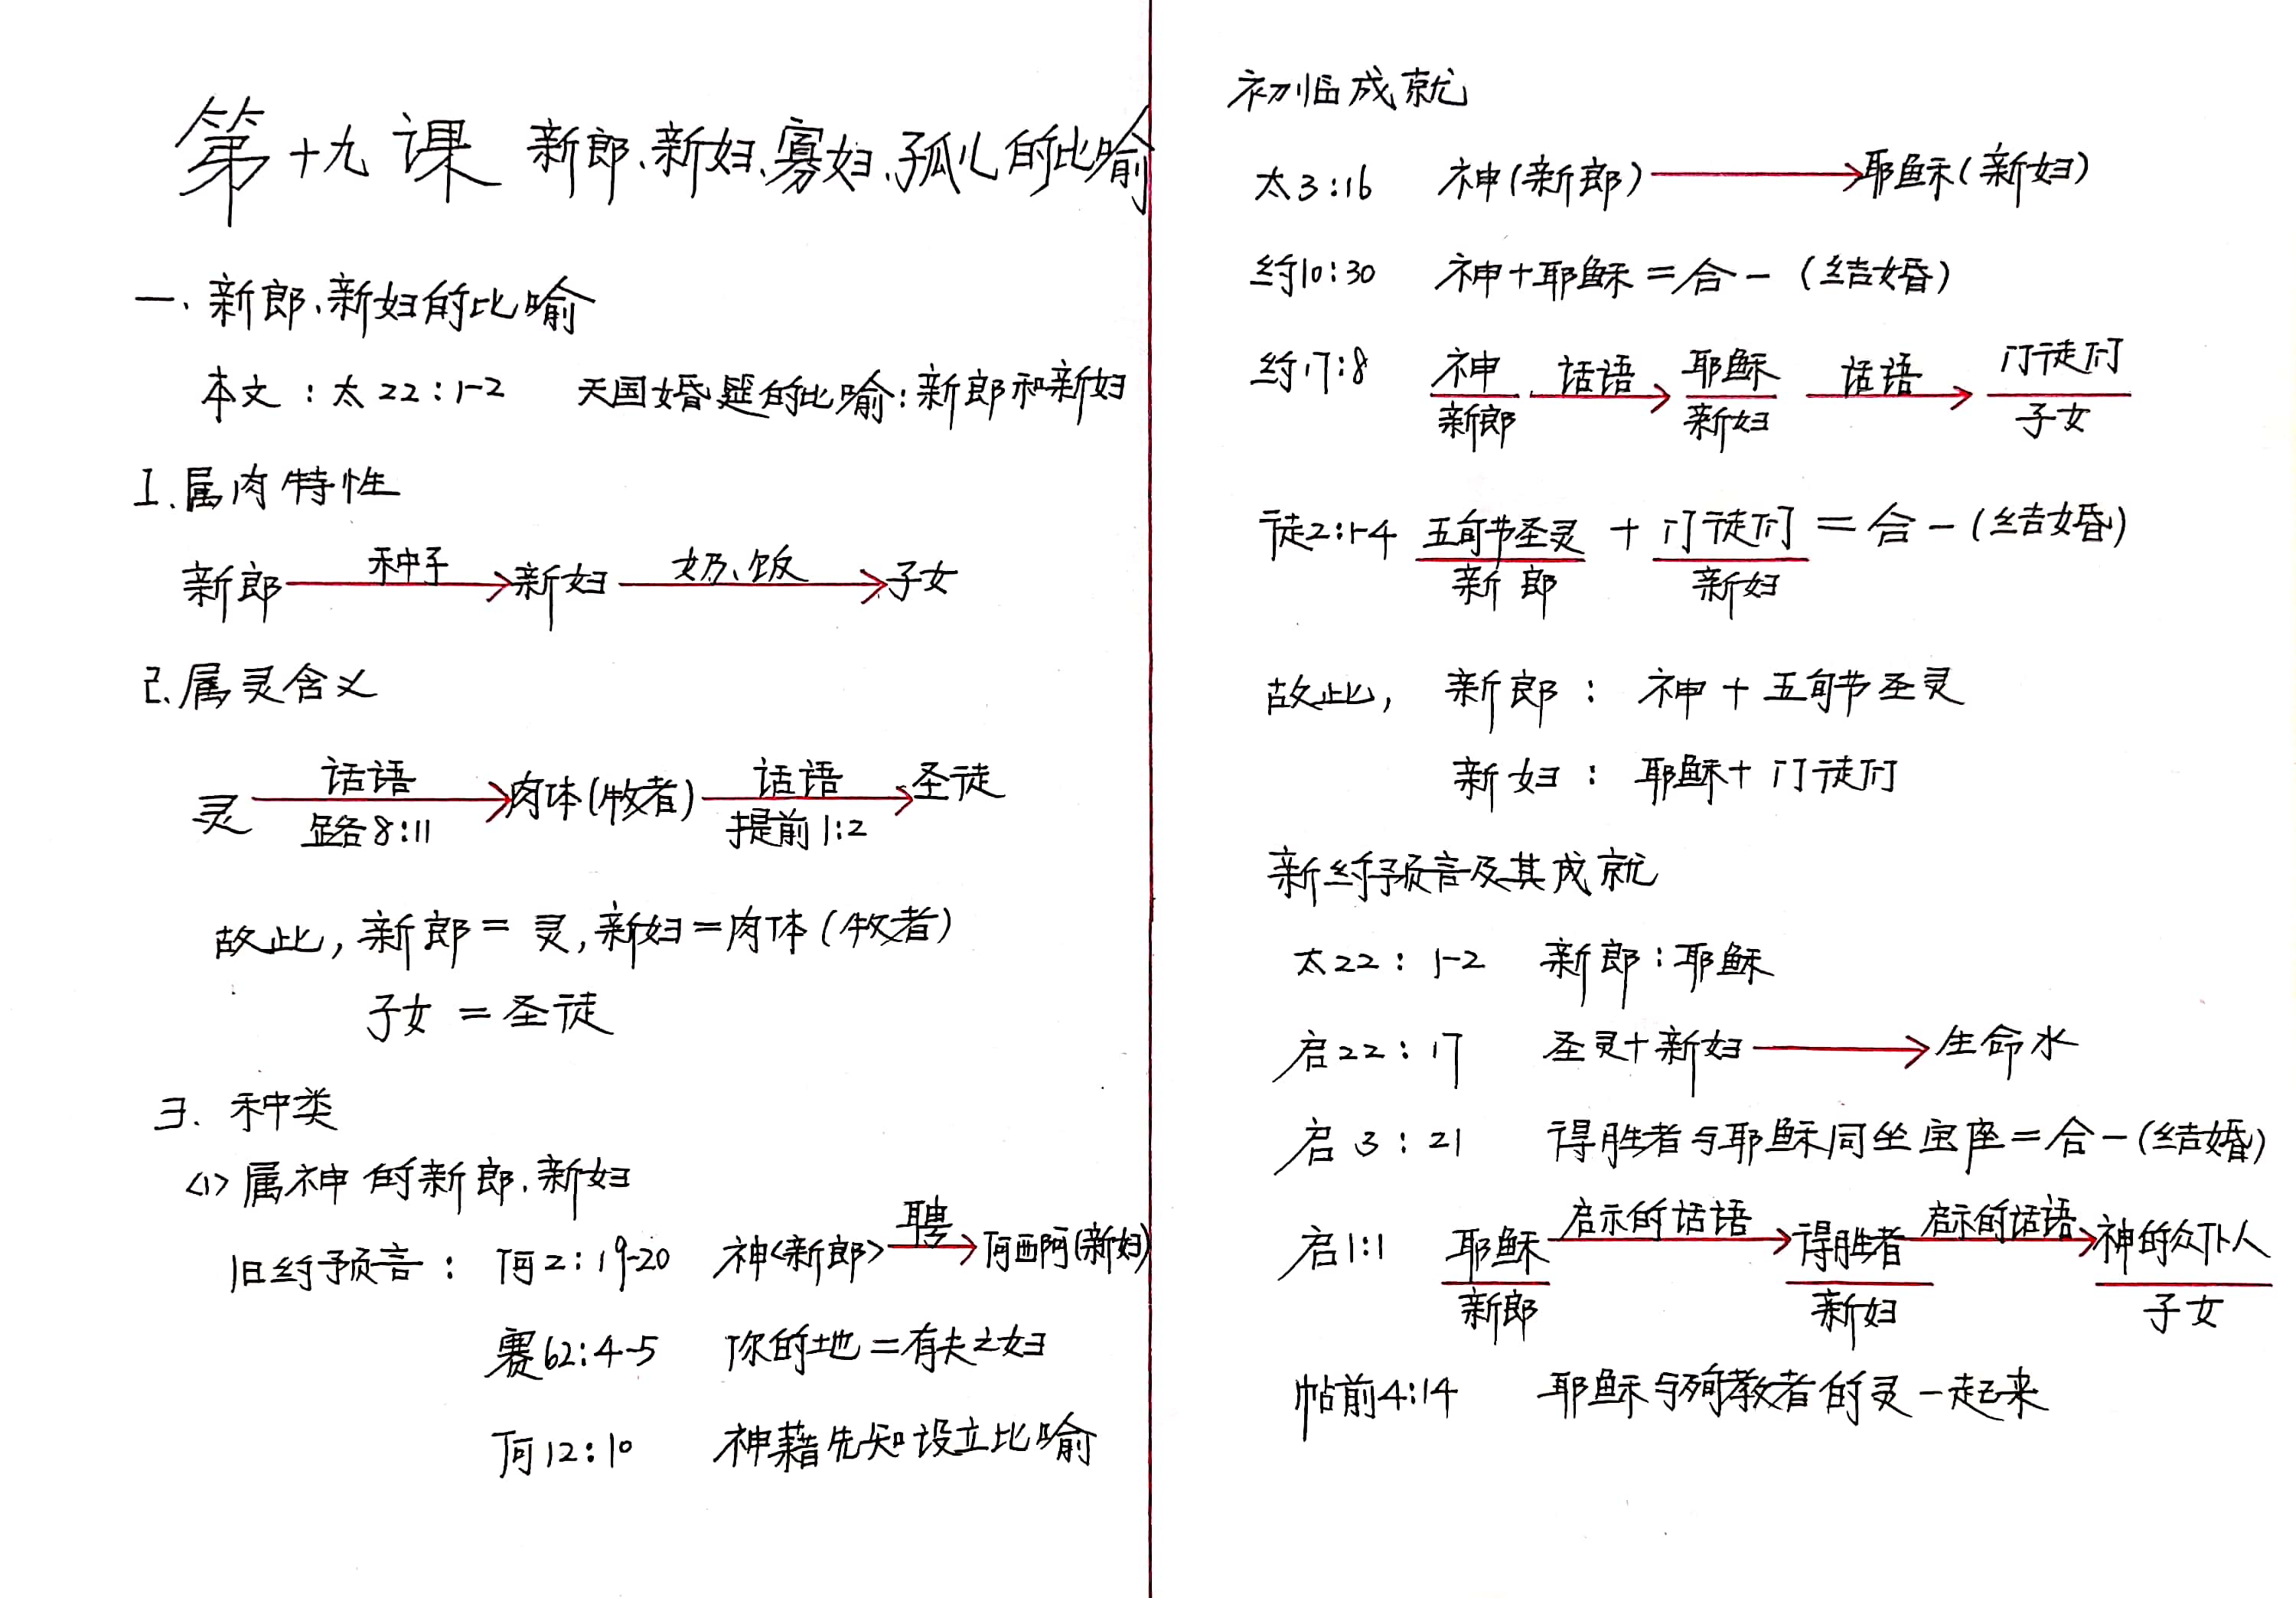 第十九课 新郎、新妇、寡妇、孤儿的比喻
一、新郎、新妇的比喻
本文：太22：1-2 天国婚筵的比喻：新郎和新妇
1.属肉特性
新郎 种子 新妇 奶、饭 子女
2.属灵含义
灵 话语 肉体(牧者) 话语 圣徒
路8:11 提前1:2
故此,新郎=灵,新妇=肉体(牧者)
子女=圣徒
3. 种类
<1>属神的新郎、新妇
旧约预言： 何2：19-20 神<新郎> 聘 何西阿(新妇)
赛62:4-5 你的地=有夫之妇
何12:10 神藉先知设立比喻
初临成就
太3:16 神(新郎) 耶稣(新妇)
约10:30 神+耶稣=合一(结婚)
约17:8 神 话语 耶稣 话语 门徒们
新郎 新妇 子女
徒2:1-4 五旬节圣灵 + 门徒们 = 合一(结婚)
新郎 新妇
故此, 新郎： 神+五旬节圣灵
新妇： 耶稣+门徒们
新约预言及其成就
太22：1-2 新郎：耶稣
启22：17 圣灵+新妇 生命水
启3：21 得胜者与耶稣同坐宝座=合一(结婚)
启1:1 耶稣 启示的话语 得胜者 启示的话语 神的众仆人
新郎 新妇 子女
帖前4:14 耶稣与殉教者的灵一起来